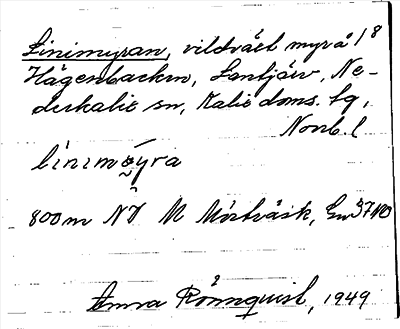 Linimyran, vildväxt myrå 1/8
Hägenbacken, Lantjärv, Ne-
derkalix sn, Kalix doms. tg,
Norrb. l
linimyra
800 m NV M Mörtträsk, Gw 37 NO
Anna Rönnqvist, 1949